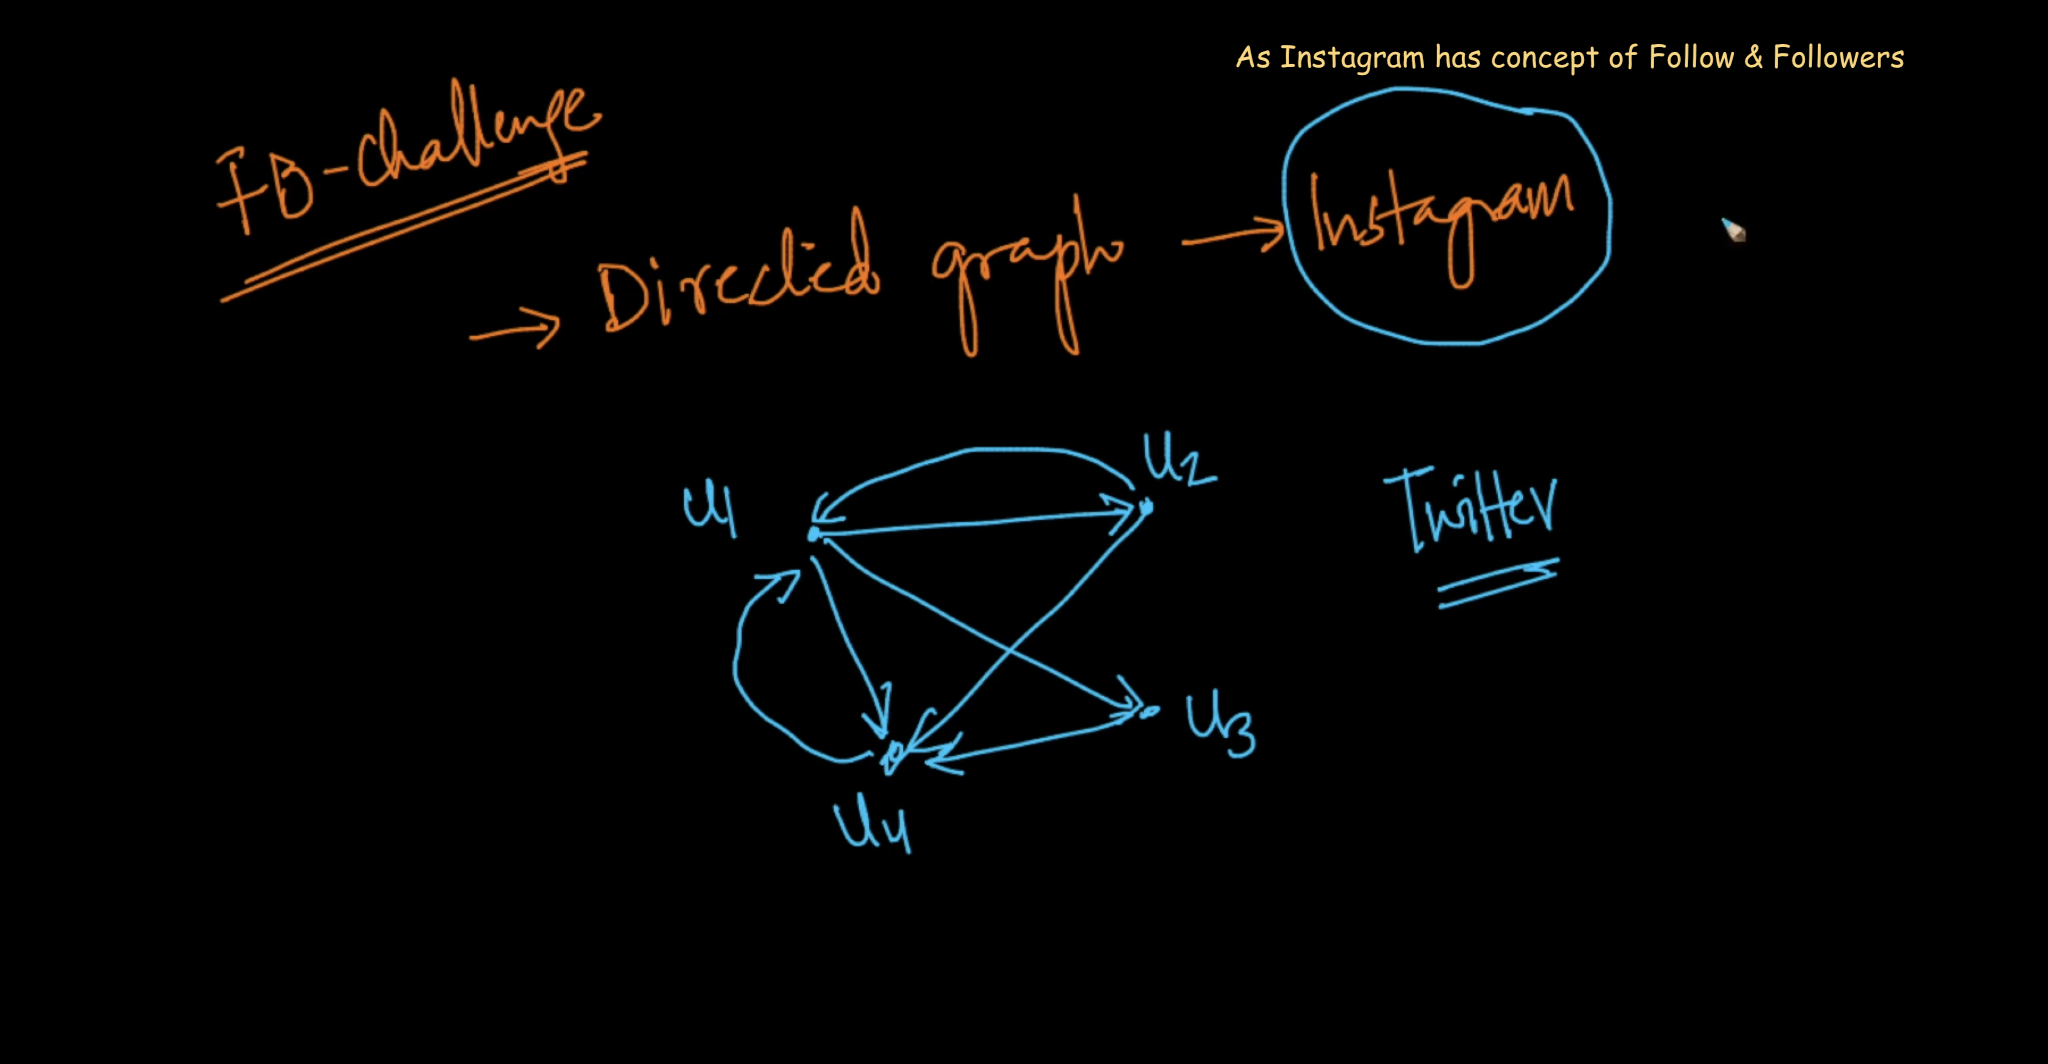 As Instagram has concept of Follow & Followers
FB-Challenge
→ Directed graph → Instagram
U1
U2
Twitter
U3
U4